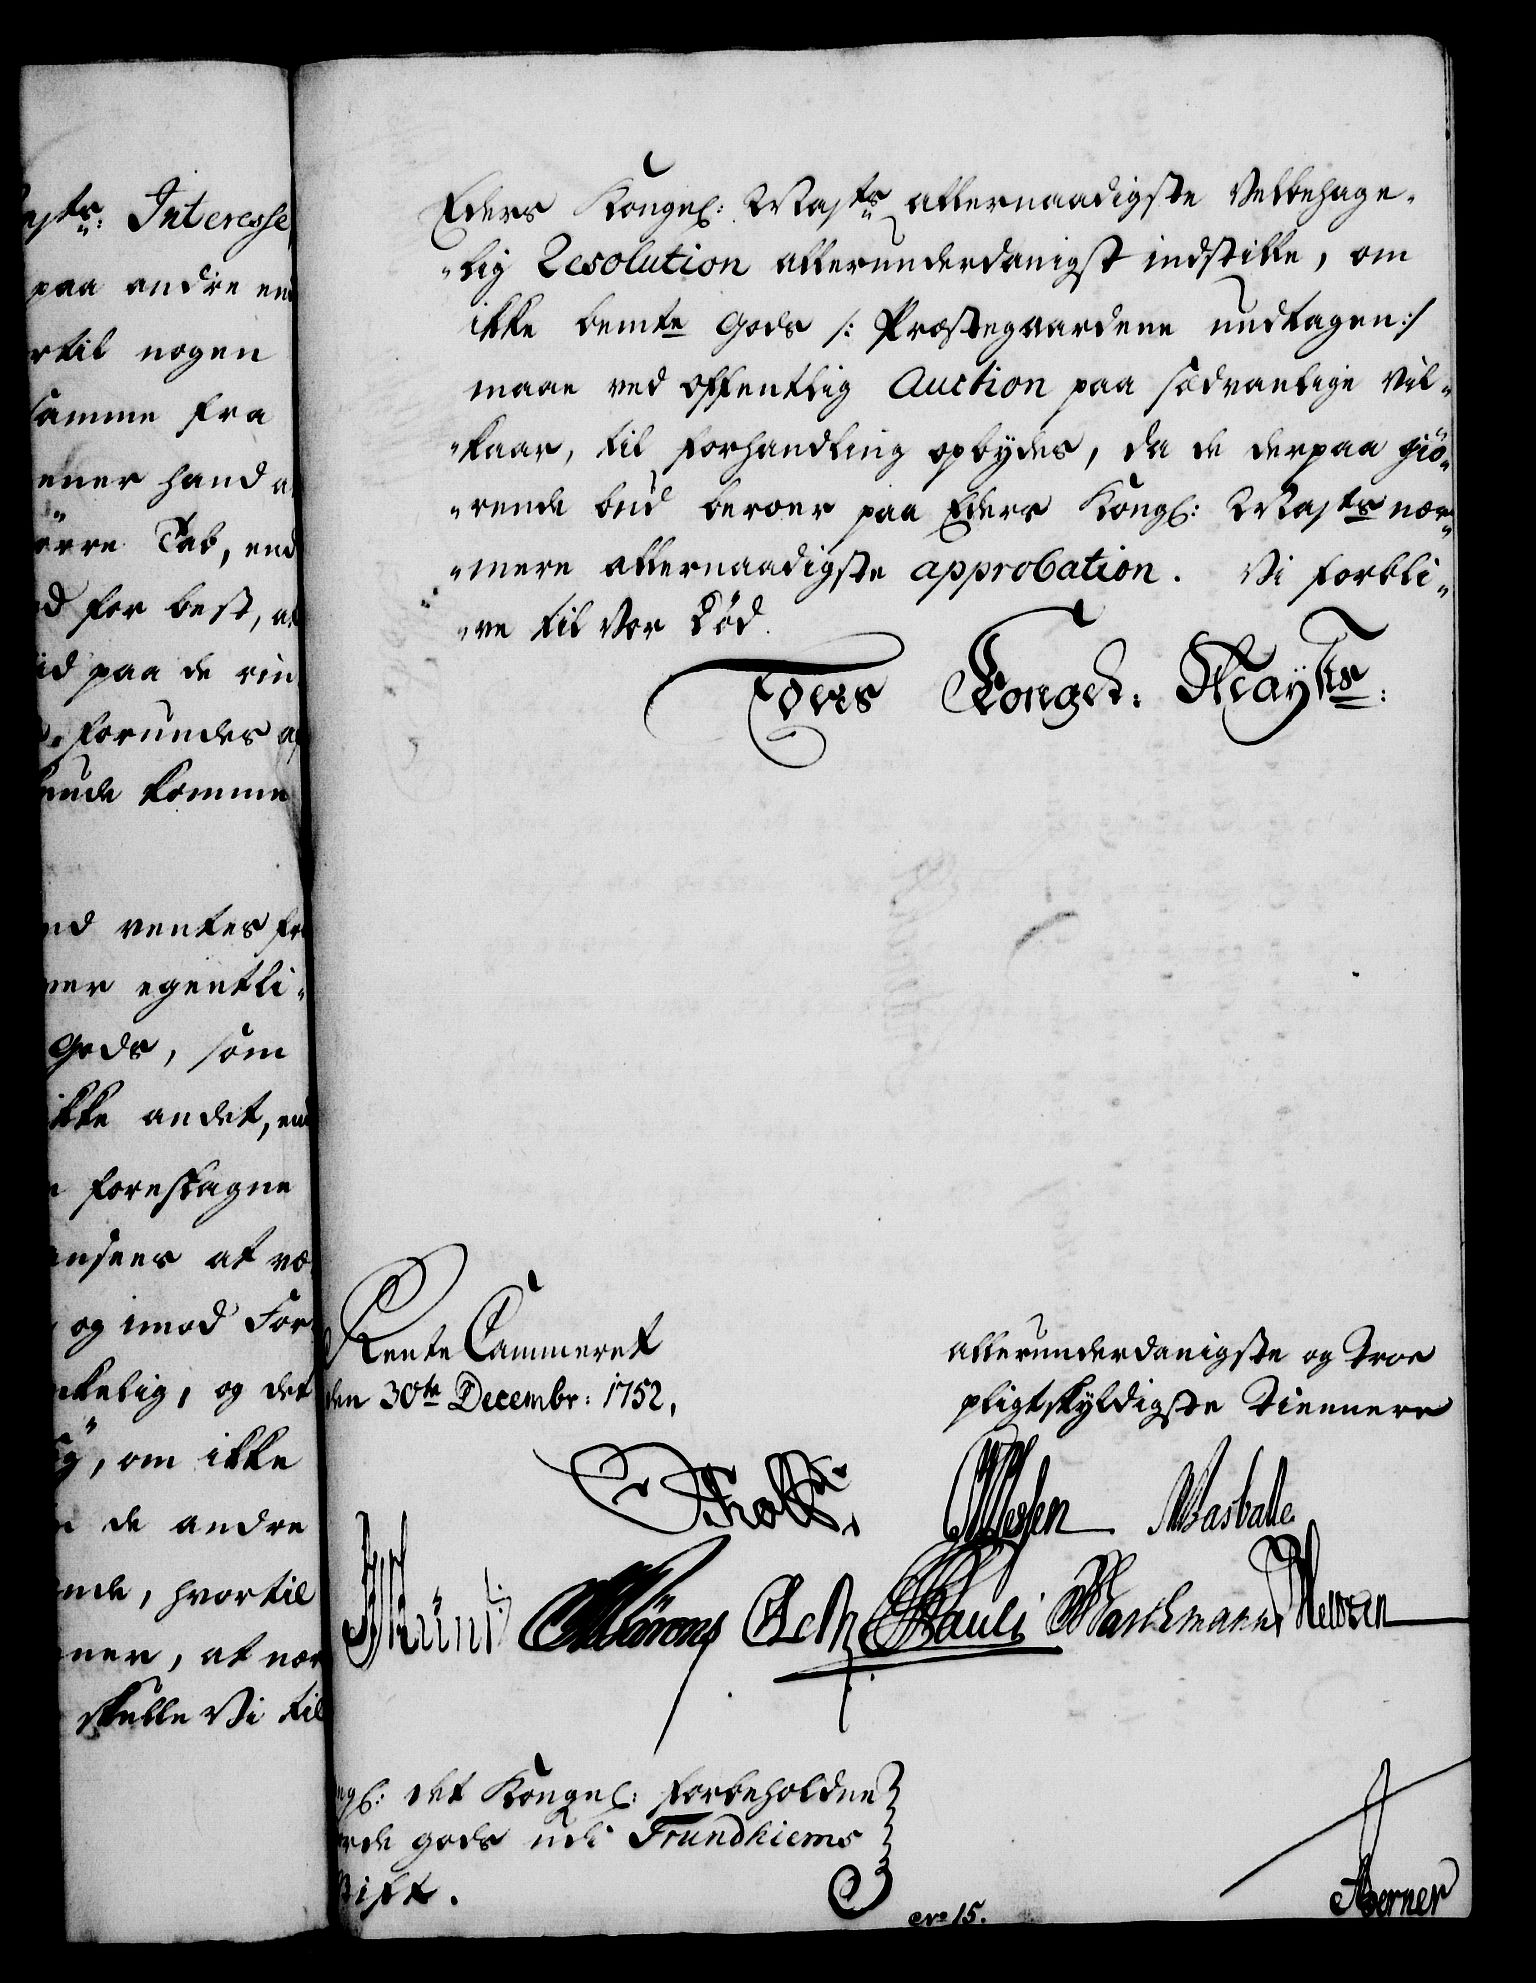 ests: Interesse
paa andre en
rtil nogen
samme fra
ener hand a
örre Tab, end
d for best, at
id paa de rin
forundes a
kunde komme
nd ventes fr
mer egentli-
Gods, som
ikke andet, end
foreslagne
ansees at væ
og imod For
kelig, og det
sy, om ikke
de andre
ende, hvortil
ner, at nær
skulle Vi til
Eders Kongel: Maysts allernaadigste Velbehage-
-lig Resolution allerunderdanigst indstille, om
ikke bemte Gods /: Præstegaardene undtagen :/
maae ved offentlig Auction paa sædvanlige Vil-
-kaar, til forhandling opbydes, da de derpaa giö-
-rende bud beroer paa Eders Kongl: Maysts nær-
-mere allernaadigste approbation. Vi forbli-
-ve til Vor Död.
Eders Kongel: Maysts:
Rente Cammeret
den 30te Decembr: 1752.
allerunderdanigste og Troe
pligtskyldigste Tiennere
Holst.
Pauli
ngl: det Kongel: forbeholdne
rde gods udi Trundhiems
Stift.
No 15.
Berner